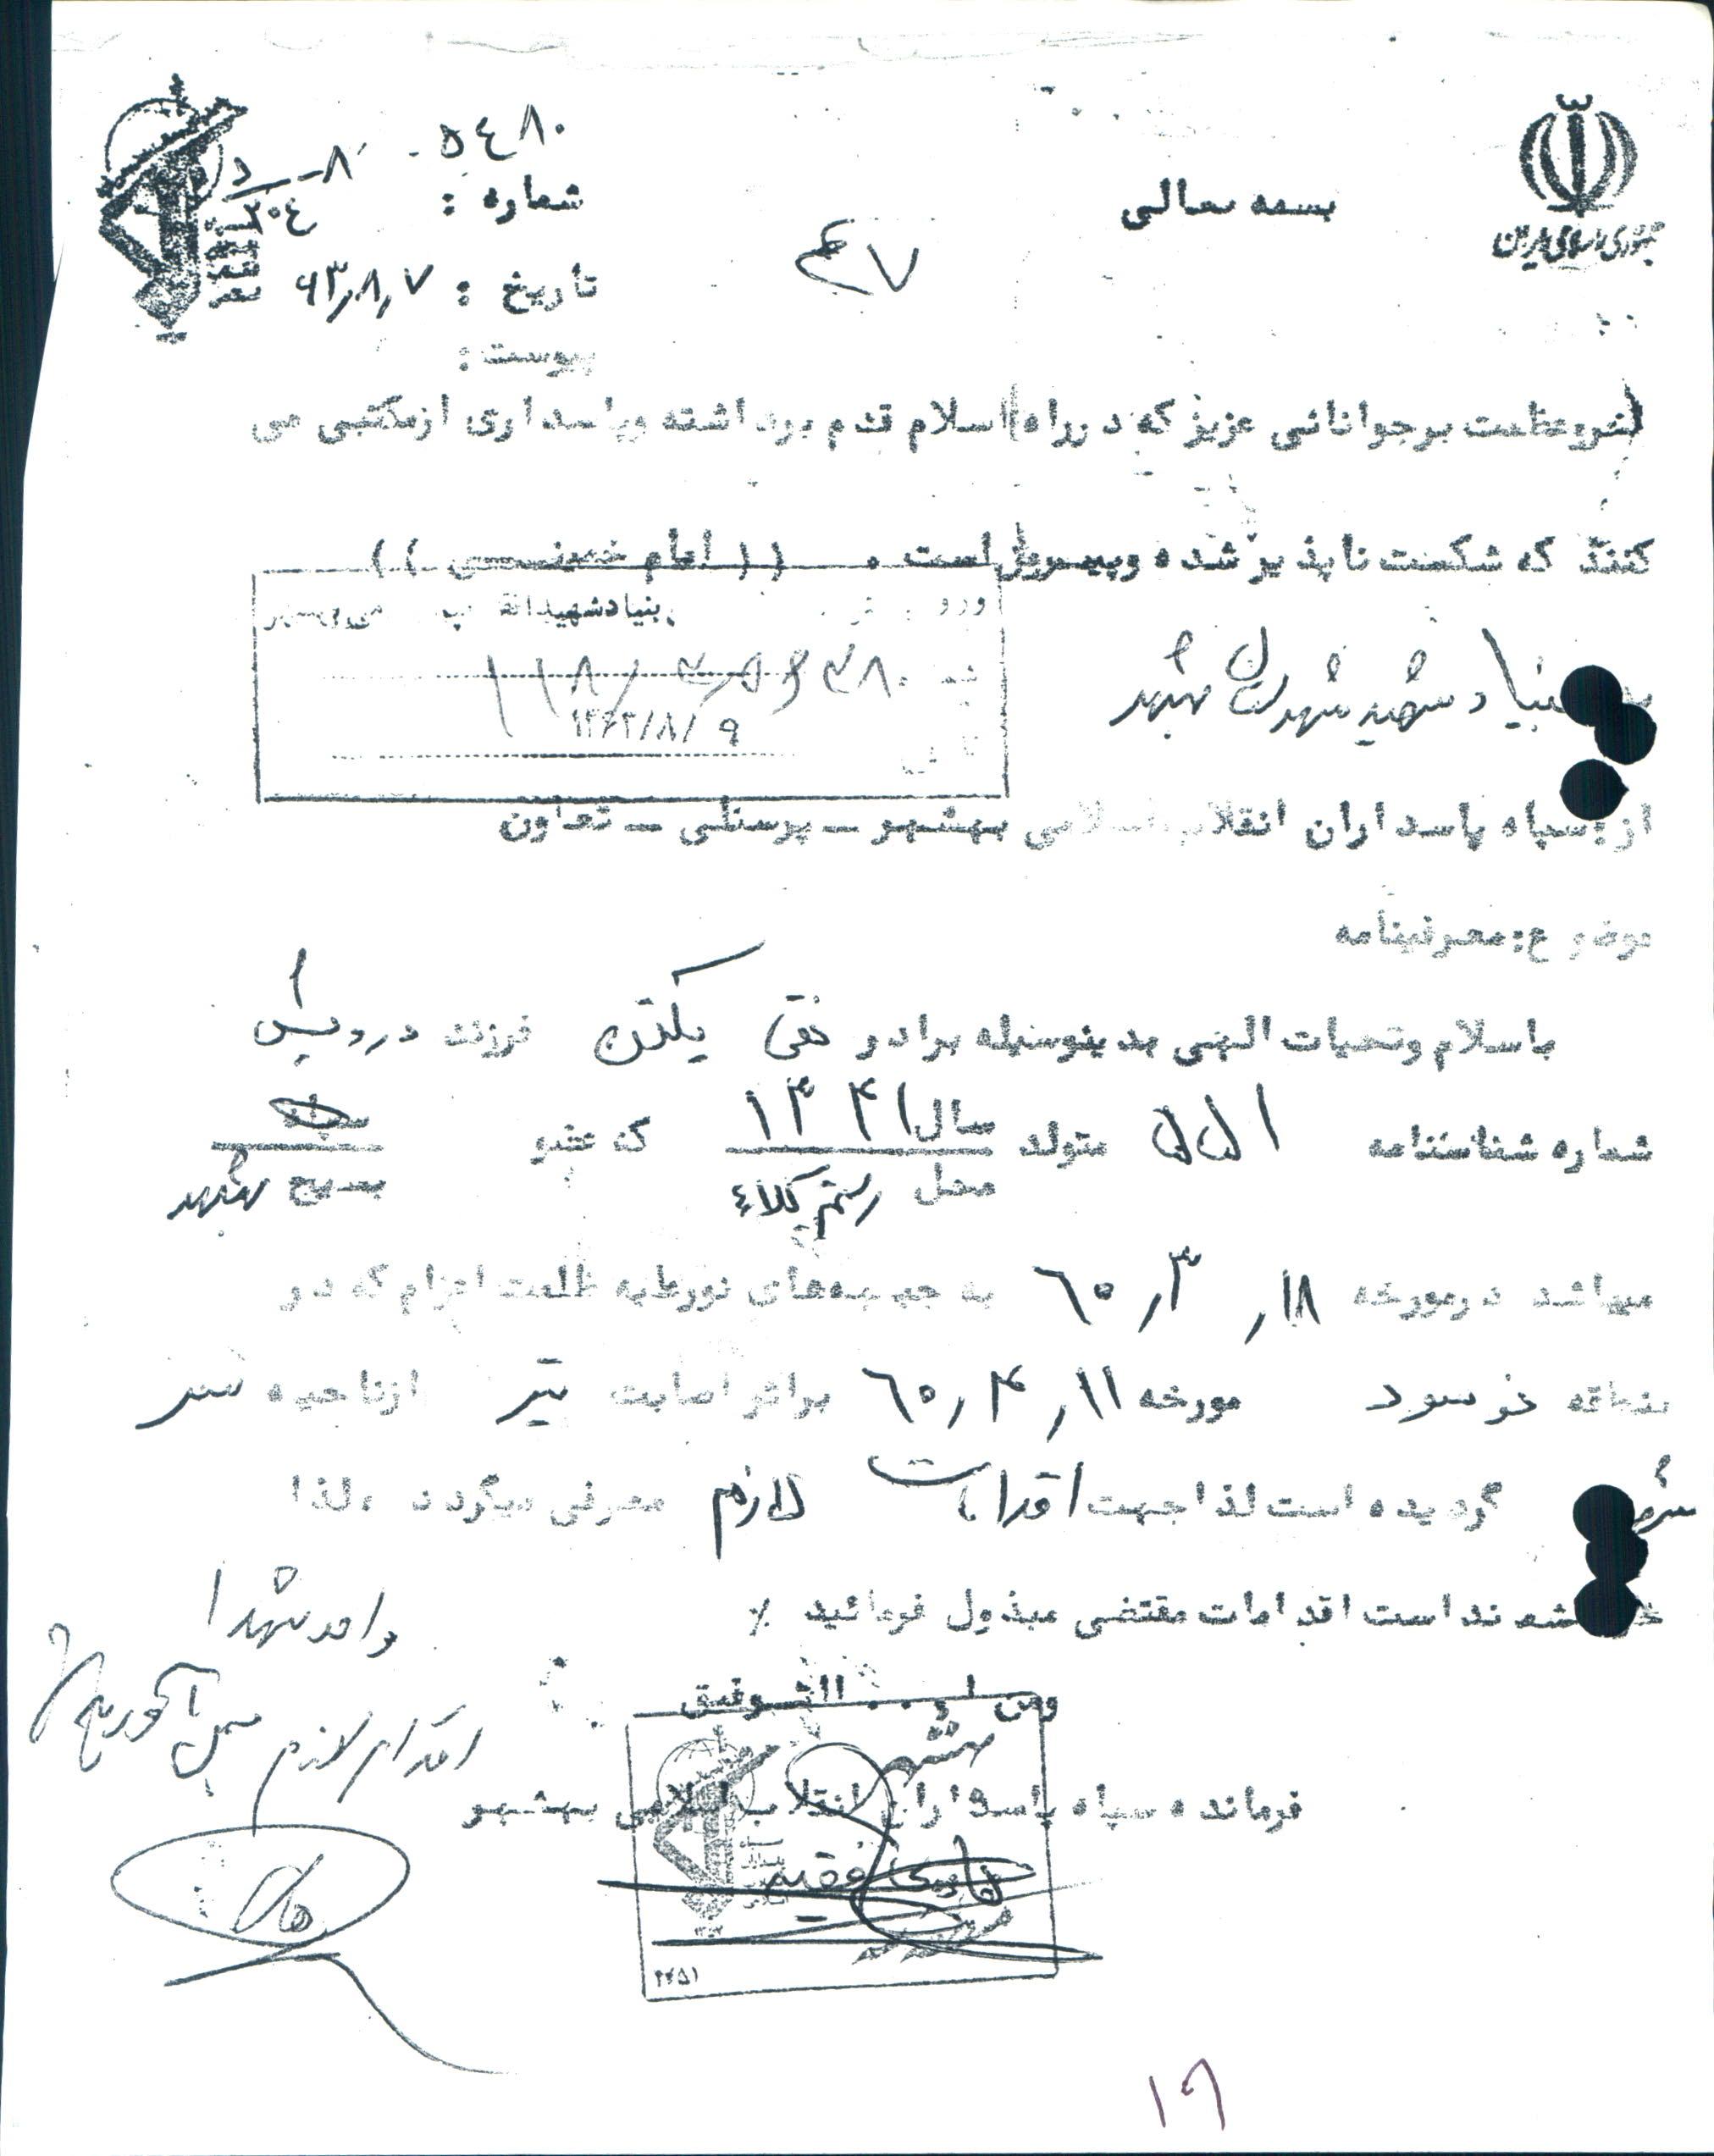 جمهوری اسلامی ایران
بسمه تعالی
۵٤۸۰
شماره :
تاریخ : ۶۳٫۸٫۷
پیوست :
بر جوانانی عزیز که در راه اسلام قدم برداشته و پاسداری از مکتبی می
کنند که شکست ناپذیر شده و پیروز است . (( امام خمینی ))
بنیاد شهید انقلاب
۱۳۶۳/۸/۹
بنیاد شهید شهرستان بهشهر
از : سپاه پاسداران انقلاب اسلامی بهشهر ـ پرسنلی ـ تعاون
موضوع : معرفینامه
باسلام وتحیات الهی بدینوسیله برادر نقی یکتن فرزند درویش
شماره شناسنامه متولد سال ۱۳۴۱ که عضو
محل رستم کلاء بسیج بهشهر
میباشد در مورخه ۱۸٫ ۳٫ ٦۰ به جبهه های نور علیه ظلمت اعزام که در
منطقه مورخه ۱۱٫ ۴٫ ٦۰ بر اثر اصابت تیر از ناحیه سر
گردیده است لذا جهت اقدامات لازم معرفی میگردد . لذا
خواهشمند است اقدامات مقتضی مبذول فرمائید ٪
ومن ا... التوفیق
فرمانده سپاه پاسداران انقلاب اسلامی بهشهر
واحد شهدا
اقدام لازم
۲۴۵۱
۱۹